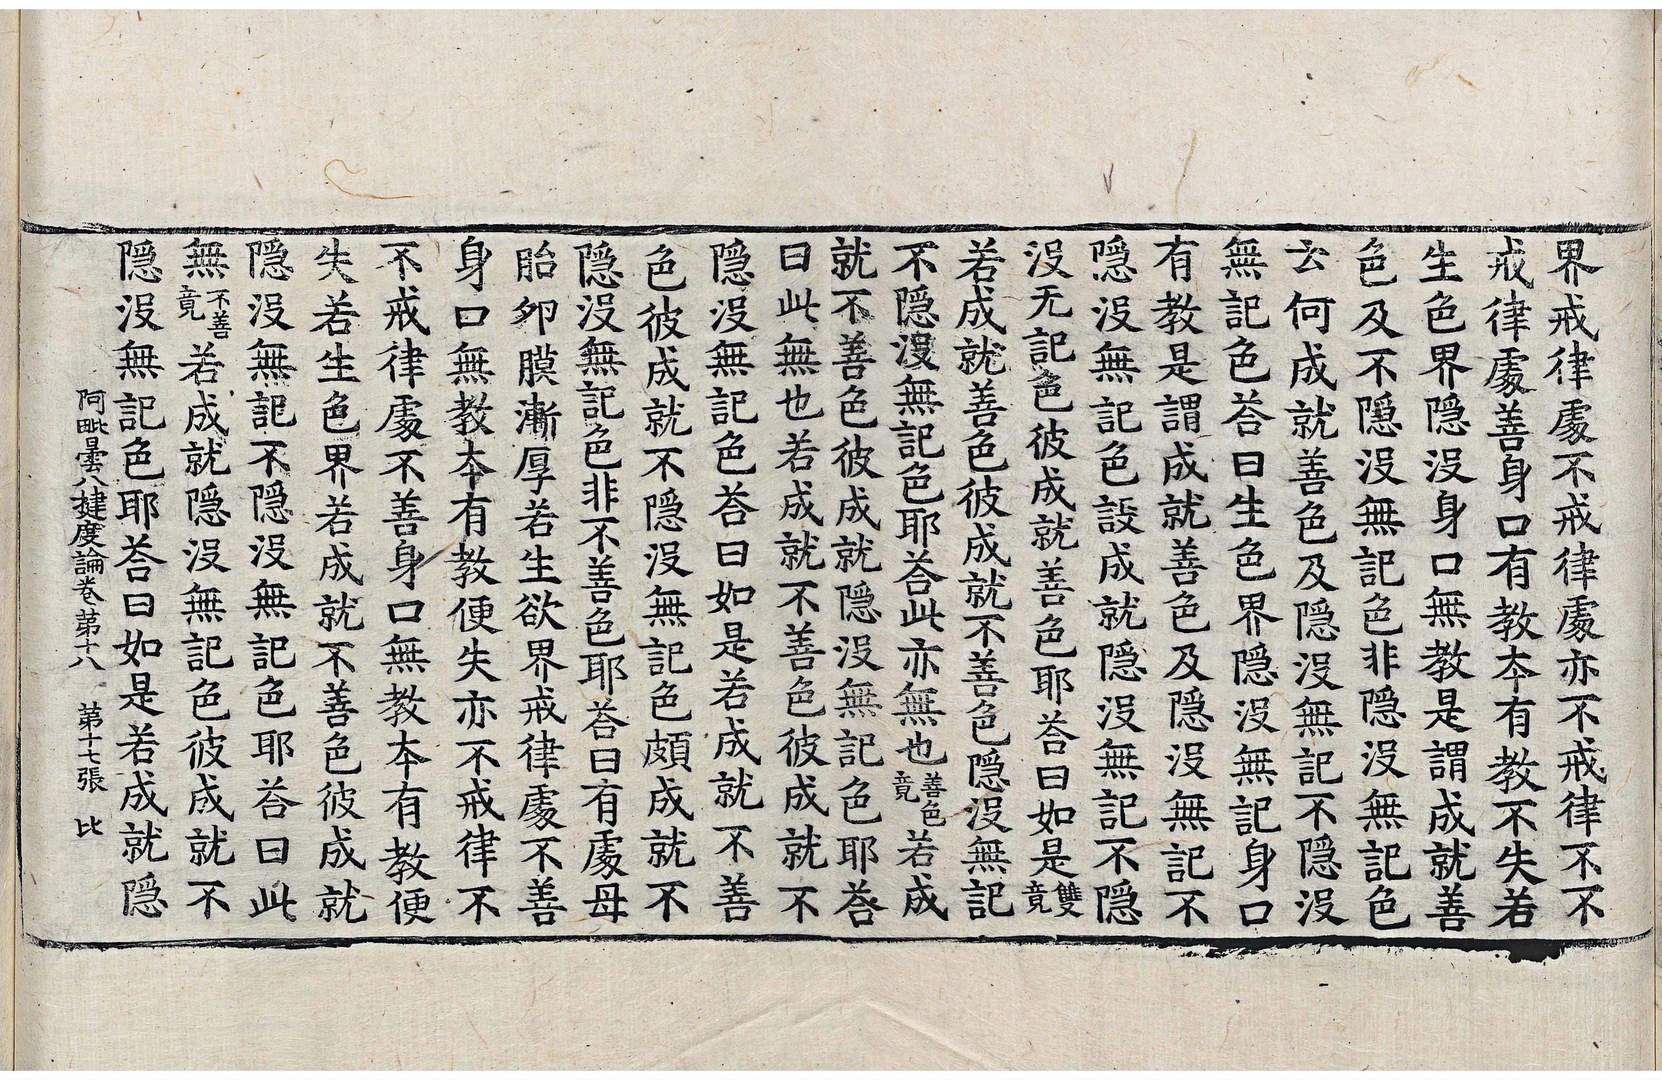 界戒律處不戒律處亦不戒律不不
戒律處善身口有教夲有教不失若
生色界隱沒身口無教是謂成就善
色及不隱沒無記色非隱沒無記色
云何成就善色及隱沒無記不隱沒
無記色荅曰生色界隱沒無記身口
有教是謂成就善色及隱沒無記不
隱沒無記色設成就隱沒無記不隱
沒无記色彼成就善色耶荅曰如是雙竟
若成就善色彼成就不善色隱沒無記
不隱沒無記色耶荅此亦無也善色竟若成
就不善色彼成就隱沒無記色耶荅
曰此無也若成就不善色彼成就不
隱沒無記色荅曰如是若成就不善
色彼成就不隱沒無記色頗成就不
隱沒無記色非不善色耶荅曰有處母
胎卵膜漸厚若生欲界戒律處不善
身口無教夲有教便失亦不戒律不
不戒律處不善身口無教夲有教便
失若生色界若成就不善色彼成就
隱沒無記不隱沒無記色耶荅曰此
無不善竟若成就隱沒無記色彼成就不
隱沒無記色耶荅曰如是若成就隱
阿毗曇八揵度論卷苐十八　苐十七張　比